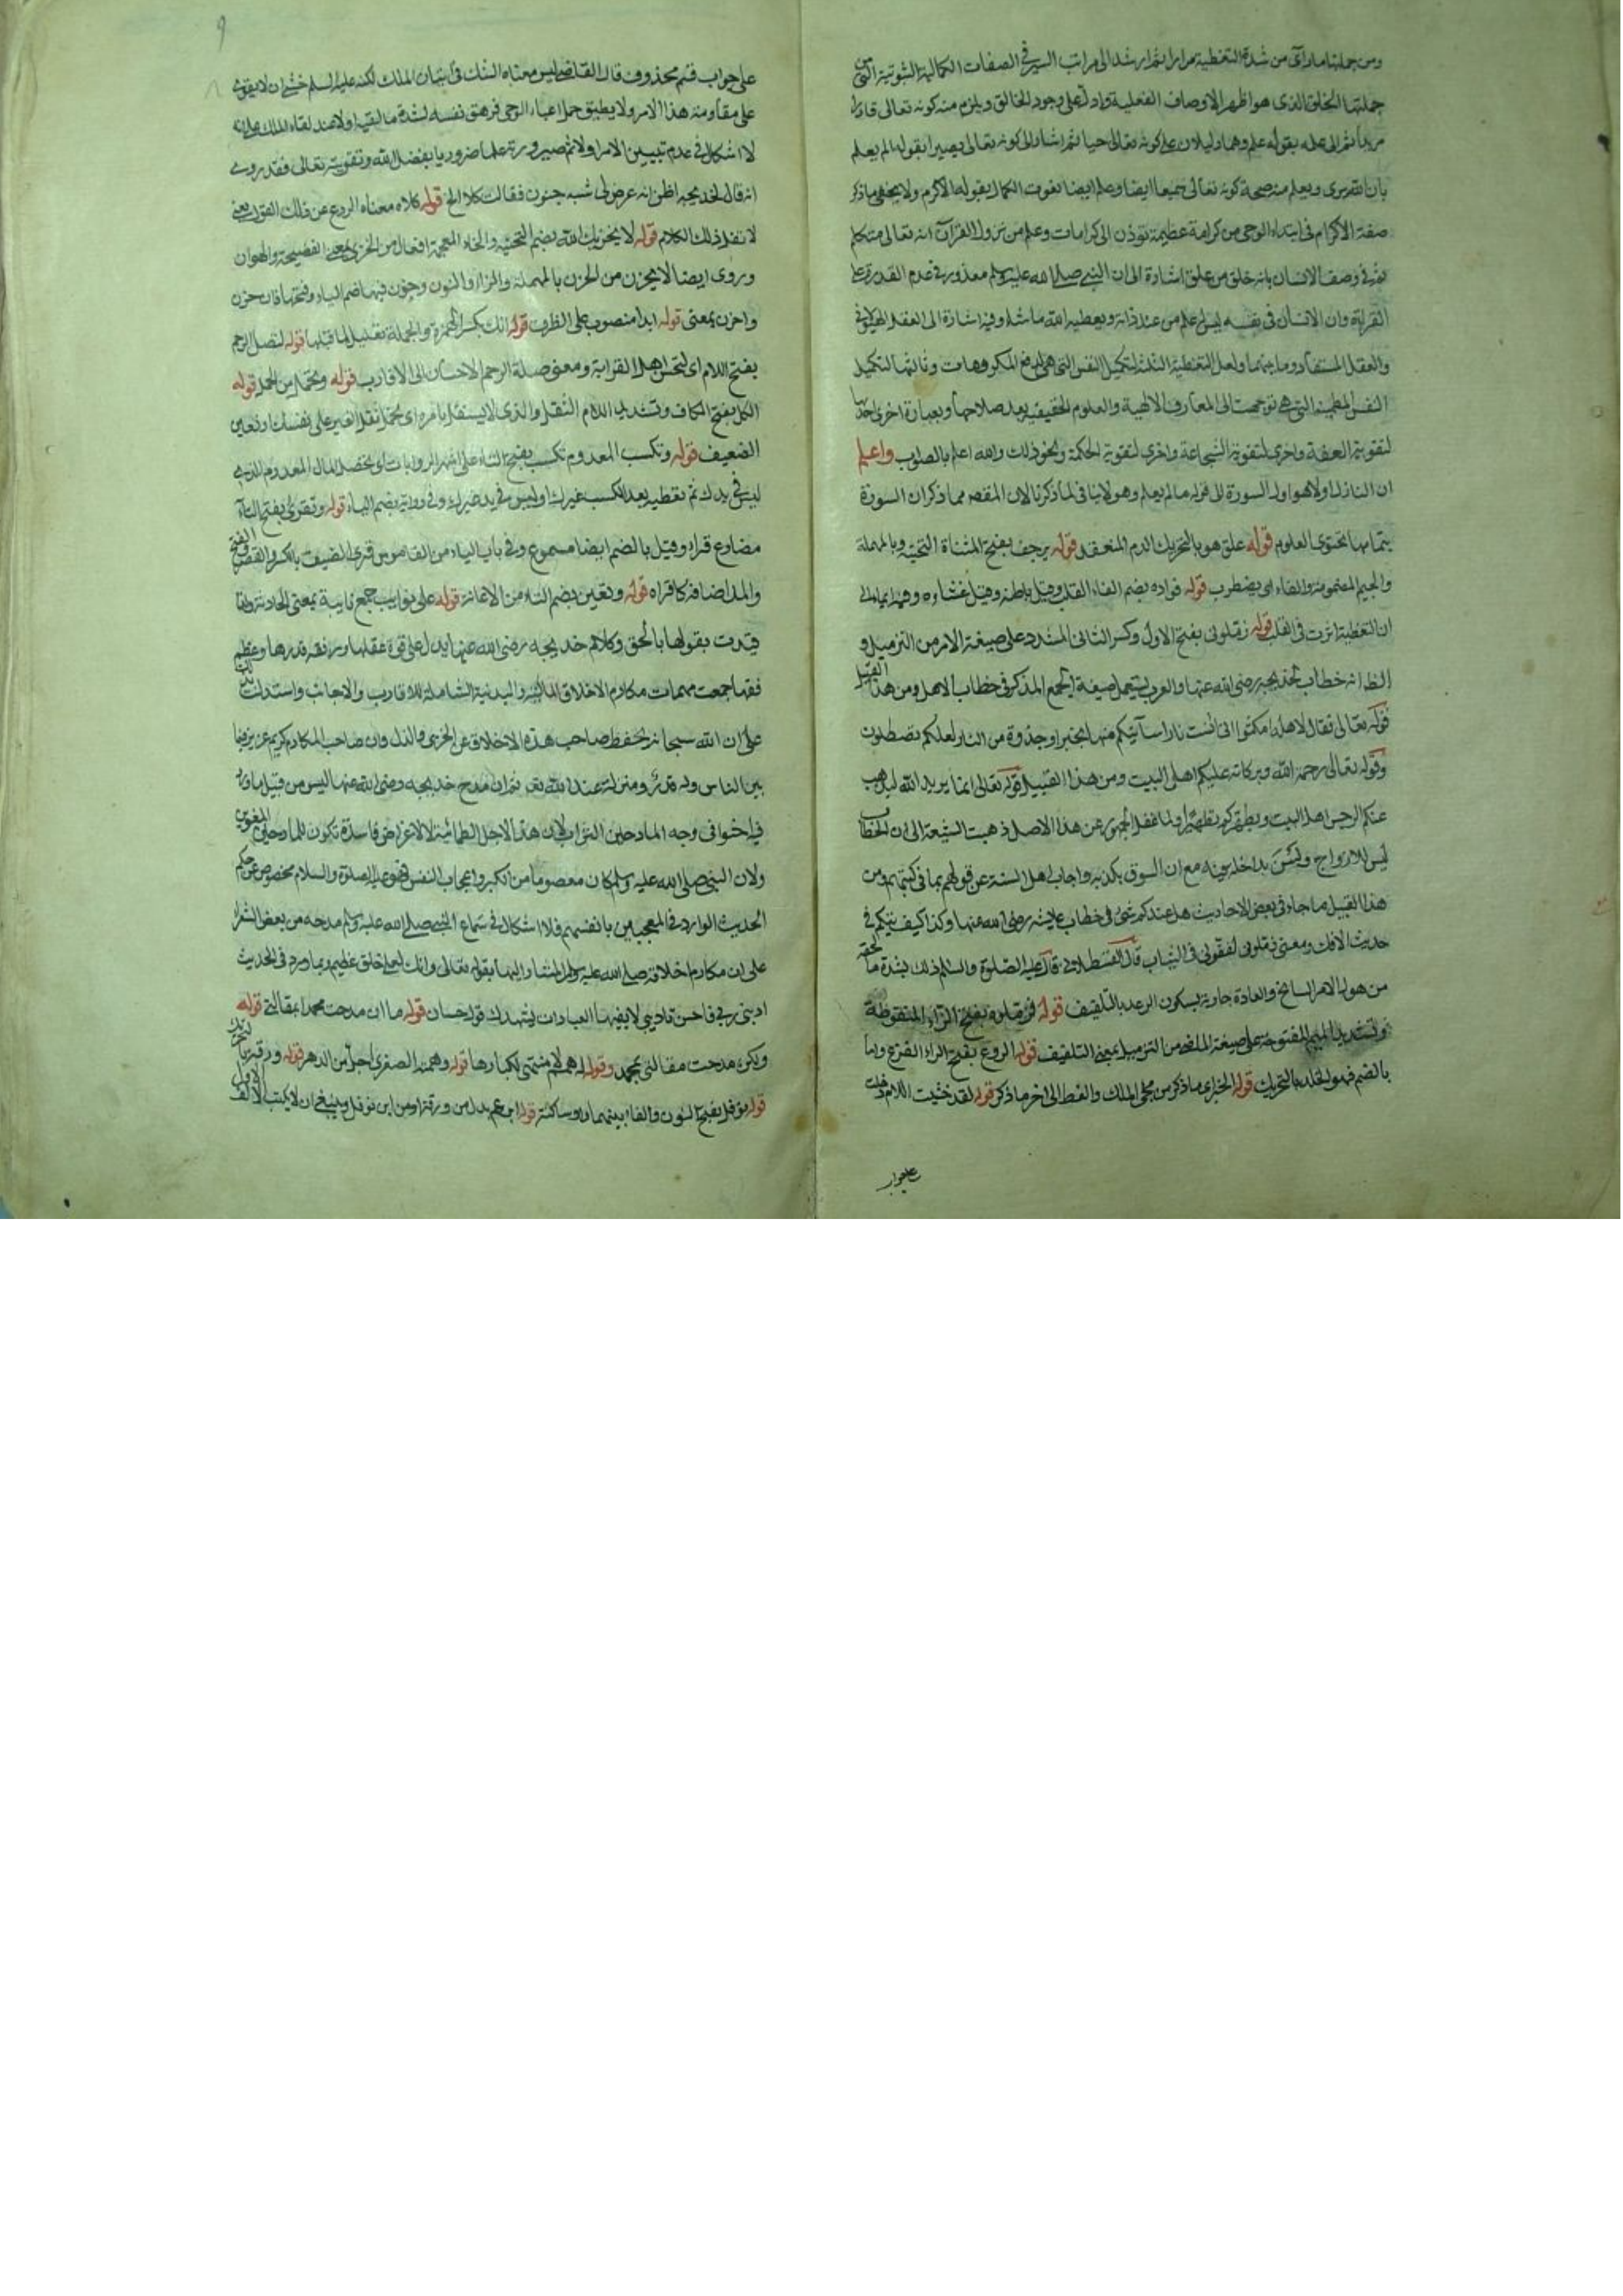 ومن جملتها ما رأى من شدة التغطية مرارا ثم ارشد الى مراتب السير في الصفات الكمالية الثبوتية التي من
جملتها الخلق الذي هو اظهر الاوصاف الفعلية وادل على وجود الخالق ويلزم منه كونه تعالى قادرا
مريدا ثم الى علمه بقوله علم وهما دليلان على كونه تعالى حيا ثم اشار الى كونه تعالى بصيرا بقوله الم يعلم
بان الله يرى ويعلم منه صحة كونه تعالى سميعا ايضا وعلم ايضا نعوت الكمال بقوله الاكرم ولا يخفى ما ذكر
صفة الاكرام في ابتداء الوحي من كرامة عظيمة تؤذن الى كرامات وعلم من نزول القرآن انه تعالى متكلم
ثم في وصف الانسان بانه خلق من علق اشارة الى ان النبي صلى الله عليه وسلم معذور في عدم القدرة على
القراءة وان الانسان في نفسه ليس له علم من عند ذاته ويعطيه الله ما شاء وفيه اشارة الى العقل الهيولاني
والعقل المستفاد وما بينهما ولعل التغطية الثلثة لتكميل النفس التي هي لدفع المكروهات وثالثها لتكميل
النفس المطمئنة التي هي توجهت الى المعارف الالهية والعلوم الحقيقية بعد صلاحها وبعبارة اخرى احديها
لتقوية العفة واخرى لتقوية الشجاعة واخرى لتقوية الحكمة ونحو ذلك والله اعلم بالصواب واعلم
ان النازل اولا هو اول السورة الى قوله ما لم يعلم وهو لا ينافي لما ذكرنا لان المقصد مما ذكر ان السورة
بتمامها تحتوي العلوم قوله علق هو بالتحريك الدم المنعقد قوله يرجف بفتح المثناة التحتية وبالمهملة
والجيم المضمومة والفاء اى يضطرب قوله فواده بضم الفاء القلب وقيل باطنه وقيل غشاءه وفيه ايماء الى
ان التغطية اثرت في القلب قوله زملوني بفتح الاول وكسر الثاني المشدد على صيغة الامر من التزميل و
الظ انه خطاب لخديجة رضى الله عنها والعرب يستعمل صيغة الجمع المذكر في خطاب الاهل ومن هذا القبيل
قوله تعالى فقال لاهله امكثوا اني آنست نارا سآتيكم منها بخبر او جذوة من النار لعلكم تصطلون
وقوله تعالى رحمة الله وبركاته عليكم اهل البيت ومن هذا القبيل قوله تعالى انما يريد الله ليذهب
عنكم الرجس اهل البيت ويطهركم تطهيرا ولما غفل الجمهور عن هذا الاصل ذهبت الشيعة الى ان الخطاب
ليس للازواج ولسن بداخل بينه مع ان السوق يكذبه واجاب اهل السنة عن قولهم بما في كتبهم ومن
هذا القبيل ما جاء في بعض الاحاديث هل عندكم شئ في خطاب عايشة رضى الله عنها وكذا كيف تيكم في
حديث الافك ومعنى زملوني لففوني في الثياب قال القسطلاني قال عليه الصلوة والسلم ذلك لشدة ما لحقه
من هول الامر السانح والعادة جارية بسكون الرعد بالتلفيف قوله فزملوه بفتح الزاء المنقوطة
وتشديد الميم المفتوحة على صيغة الماضي من التزميل بمعنى التلفيف قوله الروع بفتح الراء الفزع واما
بالضم فهو الخلد بالتحريك قوله الخبر اى ما ذكر من مجئ الملك والغط الى اخر ما ذكر قوله لقد خشيت اللام دخلت
على جواب
على جواب قسم محذوف قال القاضي ليس معناه الشك في اتيان الملك لكنه عليه السلم خشى ان لا يقوى
على مقاومة هذا الامر ولا يطيق حمل اعباء الوحى فزهق نفسه لشدة ما لقيه اولا عند لقاء الملك على انه
لا اشكال في عدم تبيين الامر اولا ثم صيرورته علما ضروريا بفضل الله وتقويته تعالى فقد روى
انه قال لخديجة اظن انه عرض لى شبه جنون فقالت كلا الخ قوله كلا ه معناه الردع عن ذلك القول يعنى
لا تقل ذلك الكلام قوله لا يخزيك الله بضم التحتية والخاء المعجمة افعال من الخزى بمعنى الفضيحة والهوان
وروى ايضا لا يحزن من الحزن بالمهملة والزاء والنون وجوز فيها ضم الياء وفتحها فان حزن
واحزن بمعنى قوله ابدا منصوب على الظرف قوله انك بكسر الهمزة والجملة تعليل لما قبلها قوله لتصل الرحم
بفتح اللام اى لتحسن اهل القرابة ومعنى صلة الرحم الاحسان الى الاقارب قوله وتحمل من الحمل قوله
الكل بفتح الكاف وتشديد اللام الثقل والذى لا يستقل بامره اى تحمل ثقل الغير على نفسك او تعين
الضعيف قوله وتكسب المعدوم تكسب بفتح التاء على اشهر الروايات اى تحصل المال المعدوم الذى
ليس في يدك ثم تعطيه بعد الكسب غيرك او ليس في يد غيرك وفي رواية بضم التاء قوله وتقرى بفتح التاء
مضارع قراء وقيل بالضم ايضا مسموع وفي باب الياء من القاموس قرى الضيف بالكسر والقصر والفتح
والمد اضافه كاقراه قوله وتعين بضم التاء من الاعانة قوله على نوايب جمع نايبة بمعنى الحادثة وانما
قيدت بقولها بالحق وكلام خديجة رضى الله عنها يدل على قوة عقلها ورزانة قدرها وعظم
فقهها جمعت مهمات مكارم الاخلاق المالية والبدنية الشاملة للاقارب والاجانب واستدلت
على ان الله سبحانه يحفظ صاحب هذه الاخلاق عن الخزى والذل وان صاحب المكارم كريم عزيز فيما
بين الناس وله قدر ومنزلة عند الله تعه ثم ان مدح خديجة رضى الله عنها ليس من قبيل ما ورد
فاحثوا في وجه المادحين التراب لان هذا لاجل الطمانينة لا لاغراض فاسدة تكون للمادحين
ولان النبي صلى الله عليه وسلم كان معصوما من الكبر واعجاب النفس فهو عليه الصلوة والسلام مخصوص عن حكم
الحديث الوارد في المعجبين بانفسهم فلا اشكال في سماع النبي صلى الله عليه وسلم مدحه من بعض الشعراء
على ان مكارم اخلاقه صلى الله عليه وسلم المشار اليها بقوله تعالى وانك لعلى خلق عظيم وبما ورد في الحديث
ادبنى ربى فاحسن تاديبى لا يفيها العبارات يشهد لك قول حسان قوله ما ان مدحت محمدا بمقالتي قوله
ولكن مدحت مقالتى بمحمد وقوله له همم لا منتهى لكبارها قوله وهمته الصغرى اجل من الدهر قوله ورقة
قوله نوفل بفتح النون والفاء بينهما واو ساكنة قوله ابن عم بدل من ورقة او من ابن نوفل وينبغي ان لا يكتب الالف